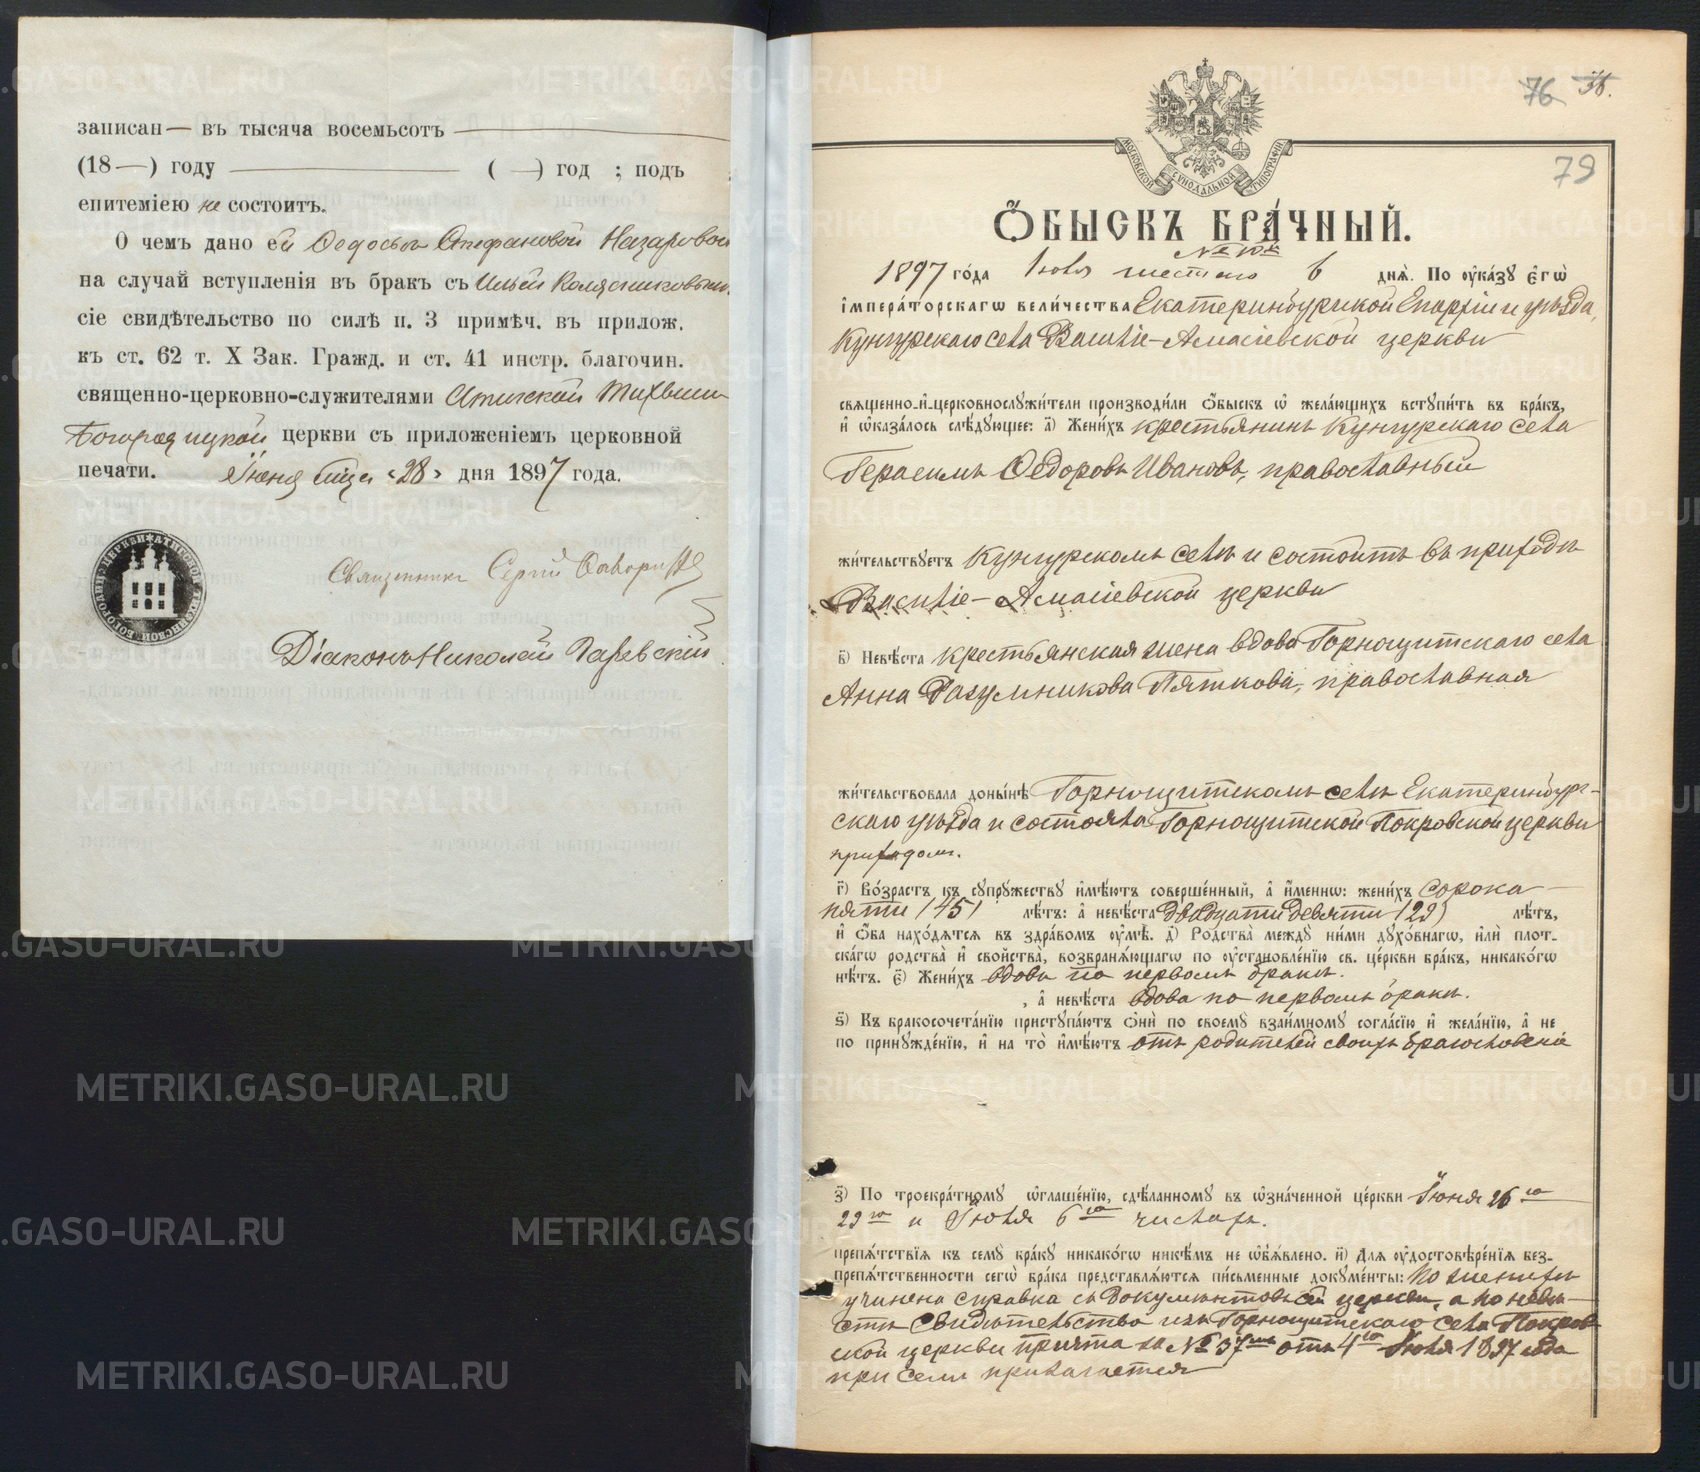 записан— въ тысяча восемьсотъ
(18—) году ( —) год ; подъ
епитеміею не состоитъ.
О чемъ дано ей Ѳедосьи Стефановой Назаровой
на случай вступленія въ бракъ съ Ильей Колясниковым
сіе свидѣтельство по силѣ п. 3 примѣч. въ прилож.
къ ст. 62 т. X Зак. Гражд. и ст. 41 инстр. благочин.
священно-церковно-служителями Атигской Тихвино
Богородицкой церкви съ приложеніемъ церковной
печати. Іюня м̃ца «28» дня 1897 года.
Священникъ Сергій
Діаконъ Николай
76
79
МОСКОВСКОЙ СѴНОДАЛЬНОЙ ТИПОГРАФІИ
Ѻ҆БЫСКЪ БРА́ЧНЫЙ.
№ 10й
1897 го́да Іюля шестаго 6 днѧ̀. По ᲂу҆ка́зꙋ є҆гѡ̀
і҆мпера́торскагѡ вели́чества Екатеринбургской Епархіи и уѣзда,
Кунгурскаго села Василіе-Амасіевской церкви
свѧще́нно-и҆-церковнослꙋжи́тели производи́ли ѻ҆́быскъ ѡ҆ жела́ющихъ встꙋпи́ть въ бра́къ,
и҆ ѡ҆каза́лось слѣ́дꙋющее: а҃) Жени́хъ крестьянинъ Кунгурскаго села
Герасимъ Ѳедоровъ Ивановъ, православный
жи́тельствꙋетъ Кунгурскомъ селѣ и состоитъ въ приходѣ
Василіе-Амасіевской церкви
в҃) Невѣ́ста крестьянская жена вдова Горнощитскаго села
Анна Разумникова Пяткова, православная
жи́тельствовала доны́нѣ Горнощитскомъ селѣ Екатеринбург-
скаго уѣзда и состояла Горнощитской Покровской церкви
приходомъ.
г҃) Во́зрастъ къ сꙋпрꙋ́жествꙋ и҆мѣ́ютъ соверше́нный, а҆ и҆́меннѡ: жени́хъ сорока
пяти (45) лѣ́тъ: а҆ невѣ́ста двадцати девяти (29) лѣ́тъ,
и҆ ѻ҆́ба нахо́дѧтсѧ въ здра́вомъ ᲂу҆мѣ̀. д҃) Родства̀ междꙋ ни́ми дꙋхо́внагѡ, и҆лѝ плот-
ска́гѡ родства̀ и҆ сво́йства, возбранѧ́ющагѡ по ᲂу҆становле́нїю св. це́ркви бра́къ, никако́гѡ
нѣ́тъ. є҃) Жени́хъ вдовъ по первомъ бракѣ.
, а҆ невѣ́ста вдова по первомъ бракѣ.
ѕ҃) Къ бракосочета́нїю пристꙋпа́ютъ ѻ҆нѝ по своемꙋ̀ взаи́мномꙋ согла́сїю и҆ жела́нїю, а҆ не
по принꙋжде́нїю, и҆ на то̀ и҆мѣ́ютъ отъ родителей своихъ благословеніе
з҃) По троекра́тномꙋ ѡ҆глаше́нїю, сдѣ́ланномꙋ въ ѡ҆зна́ченной це́ркви Іюня 26го
29го и Іюля 6го числахъ.
препѧ́тствїѧ къ семꙋ̀ бра́кꙋ никако́гѡ никѣ́мъ не ѡ҆б̾ѧ́влено. и҃) Длѧ ᲂу҆достовѣре́нїѧ без-
препѧ́тственности сегѡ̀ бра́ка представлѧ́ютсѧ пи́сьменные докꙋме́нты: По женихѣ
учинена справка съ документовъ сей церкви, а по невѣ-
стѣ Свидѣтельство изъ Горнощитскаго села Покров
ской церкви причта за № 37мъ отъ 4го Іюля 1897 года
при семъ прилагается